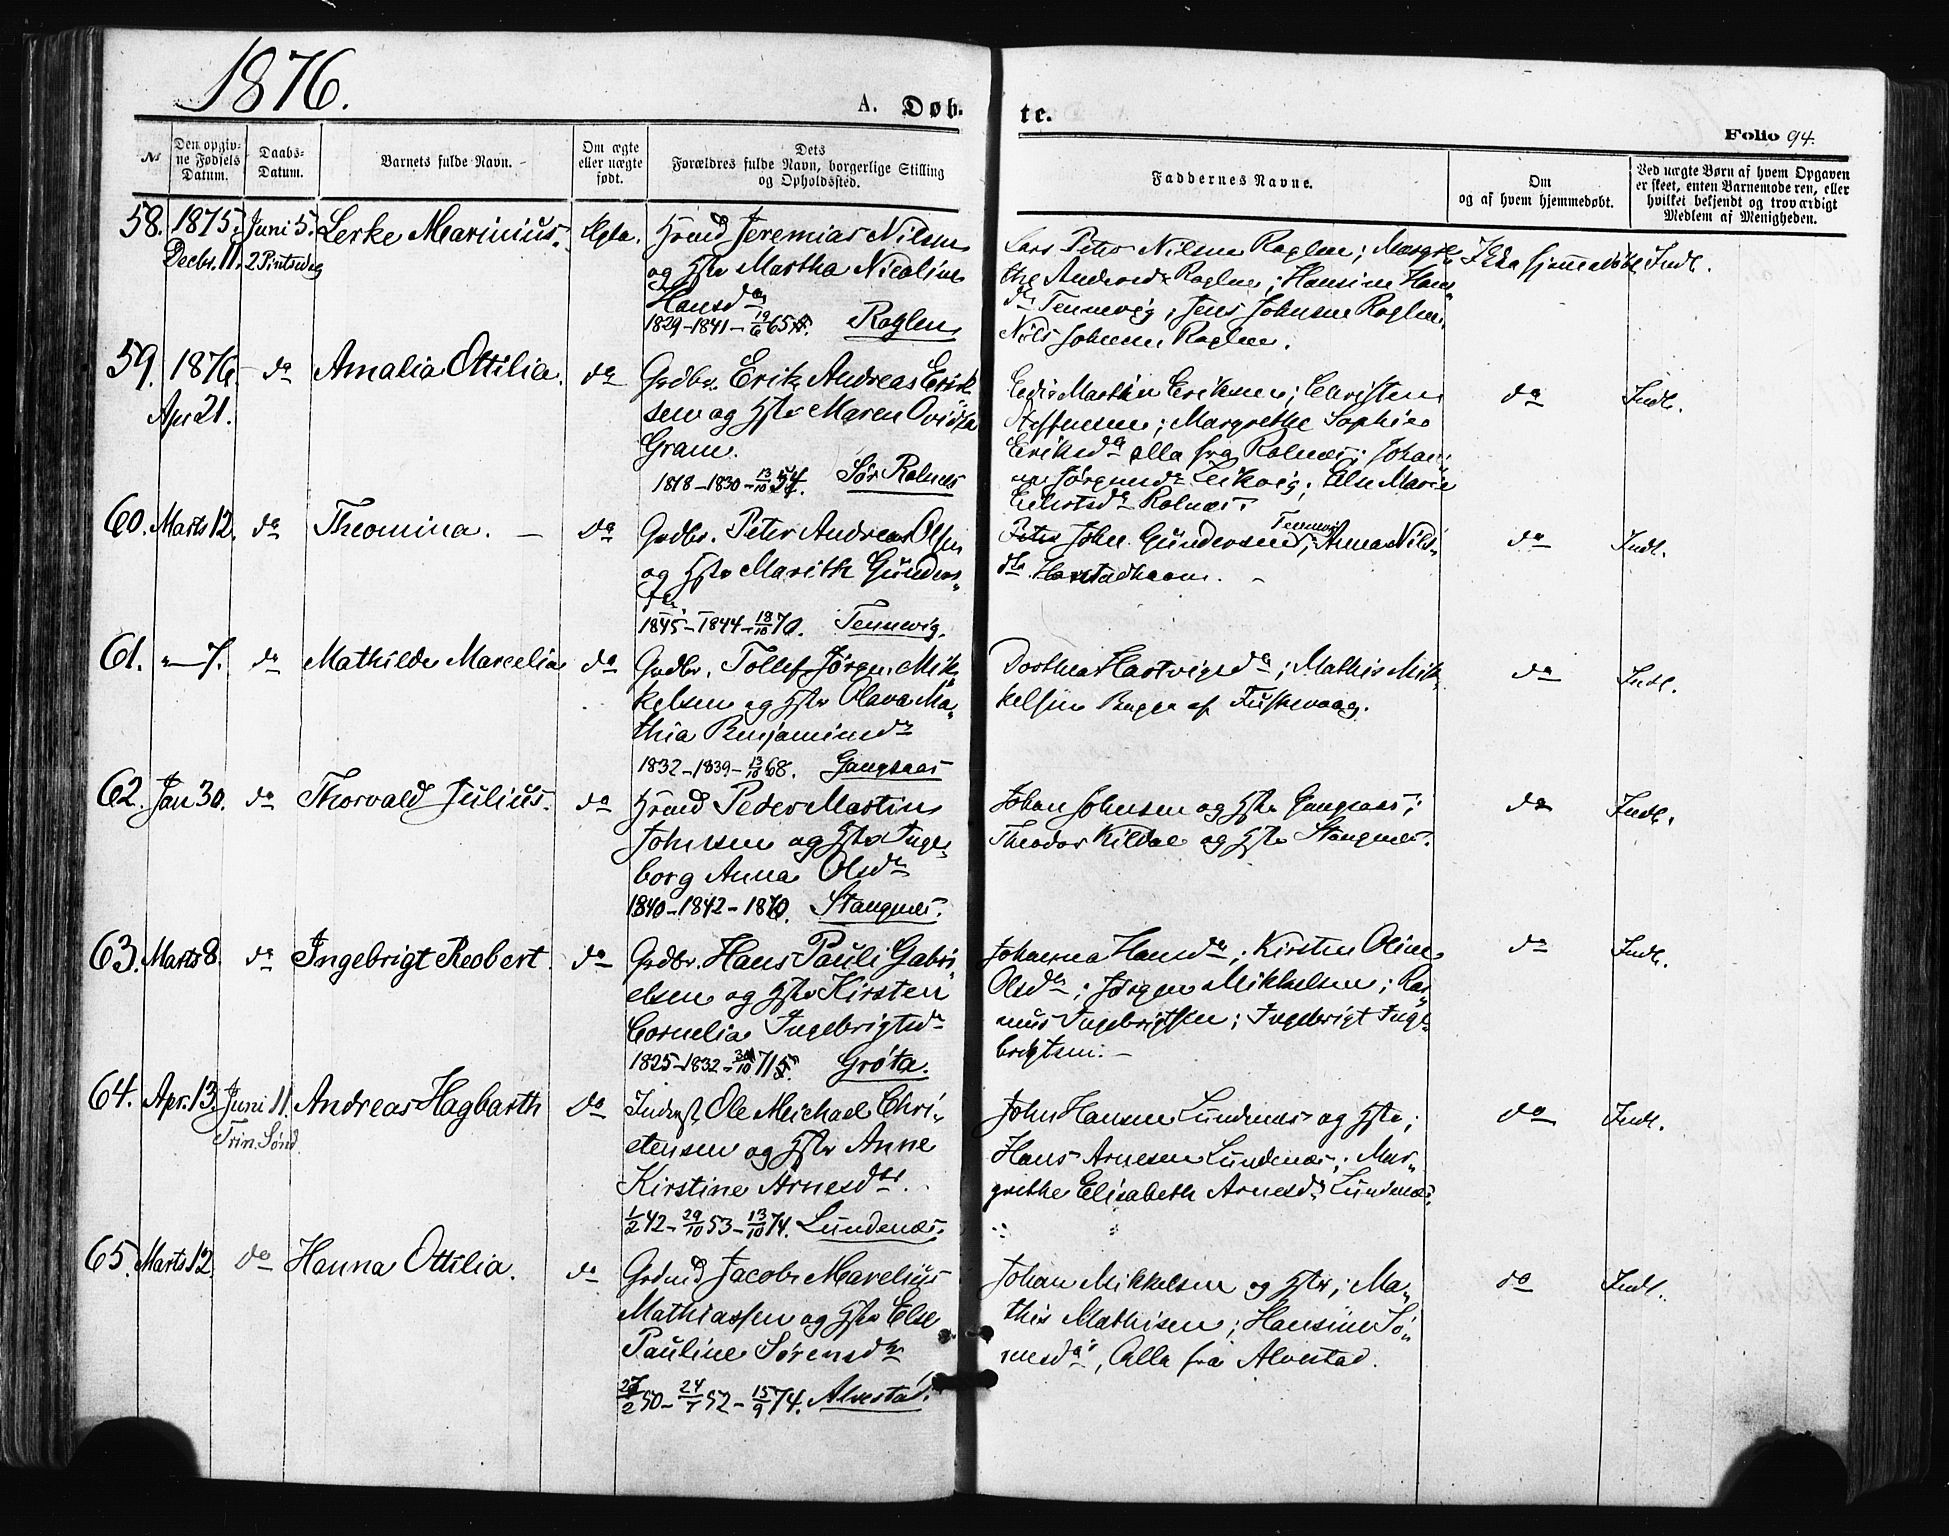 1876.
A. Døb-
te.
Folio 94.
№
Den opgiv-
ne Fødsels
Datum.
Daabs-
Datum.
Barnets fulde Navn.
Om ægte
eller uægte
født.
Dets
Forældres fulde Navn, borgerlige Stilling
og Opholdssted.
Faddernes Navne.
Om
og af hvem hjemmedøbt.
Ved uægte Børn af hvem Opgaven
er skeet, enten Barnemoderen, eller
hvilket bekjendt og troværdigt
Medlem af Menigheden.
58. 1875. Juni 5. Lerke Marinius. Ægte. Jeremias Nilsen
Decbr. 11. 2 Pintsedag og Hstr Martha Nicoline
Hansdr
1829-1841-19/6 65 Roglen
Lars Peter Nilsen Roglen; Margre-
the Andersdr Roglen; Hansine Hans
dr Tennevig; Jens Johnsen Roglen,
Nils Johnsen Roglen.
Ikke hjemmedøbt Indl.
59. 1876 do Amalia Ottilia. do Grdbr. Erik Andreas Erik-
Apr 21. sen og Hstr Maren Ovidia
Gram.
1818-1830-13/10 54. Sør Rolnes
Martin Eriksen; Christen
Steffensen; Margrethe Sophie
Eriksdr alla fra Rolnæs; Johan-
ne Jørgensdr Leikvig; Elen Marie
Rolnæs.
do Indl.
60. Marts 12. do Theomina. do Grdbr. Peter Andreas Olsen
og Hstr Marith Gunders-
dtr
1845-1844-18/10 70. Tennevig.
Peter John Gundersen Tennevig; Anna Nils-
dtr Harstadhavn.
do Indl.
61. "-7. do Mathilde Marcelia do Grdbr. Tollef Jørgen Mik-
kelsen og Hstr Olava Ma-
thia Benjaminsdr
1832-1839-13/10 68. Gangsaas
Dorthea Hartvigsdr; Mathis Mik-
kelsen Bugge af Fuskevaag.
do Indl.
62. Jan 30. do Thorvald Julius. do Peder Martin
Johnsen og Hstr Inge-
borg Anna Olsdr
1840-1842-1870. Stangnes.
Johan Johnsen og Hstr Gangsaas;
Theodor Kildal og Hstr Stangnes.
do Indl.
63. Marts 8. do Ingebrigt Reobert do Grdbr. Hans Pauli Gabri-
elsen og Hstr Kirsten
Cornelia Ingebrigtsdr
1825-1832-30/10 71. Grøta.
Johanna Hansdr; Kirsten Oline
Olsdr; Jørgen Mikkelsen; Ras-
mus Ingebrigtsen; Ingebrigt Inge-
brigtsen.
do Indl.
64. Apr. 13 Juni 11. Andreas Hagbarth do Inderst Ole Michael Chri-
Trin. Sønd. stensen og Hstr Anne
Kirstine Arnesdtr.
1/2 42-29/10 53-13/10 74. Lundenæs.
John Hansen Lundenæs og Hstr;
Hans Arnesen Lundenæs; Mar-
grethe Elisabeth Arnesdr Lundenæs
do Indl.
65. Marts 12. do Hanna Ottilia. do Grdmd Jacob Marelius
Mathiassen og Hstr Else
Pauline Sørensdr
27/2 50-24/7 52-15/9 74. Alvestad.
Johan Mikkelsen og Hstr; Ma-
this Mathisen; Hansine Sø-
rensdr, Alla fra Alvestad.
do Indl.